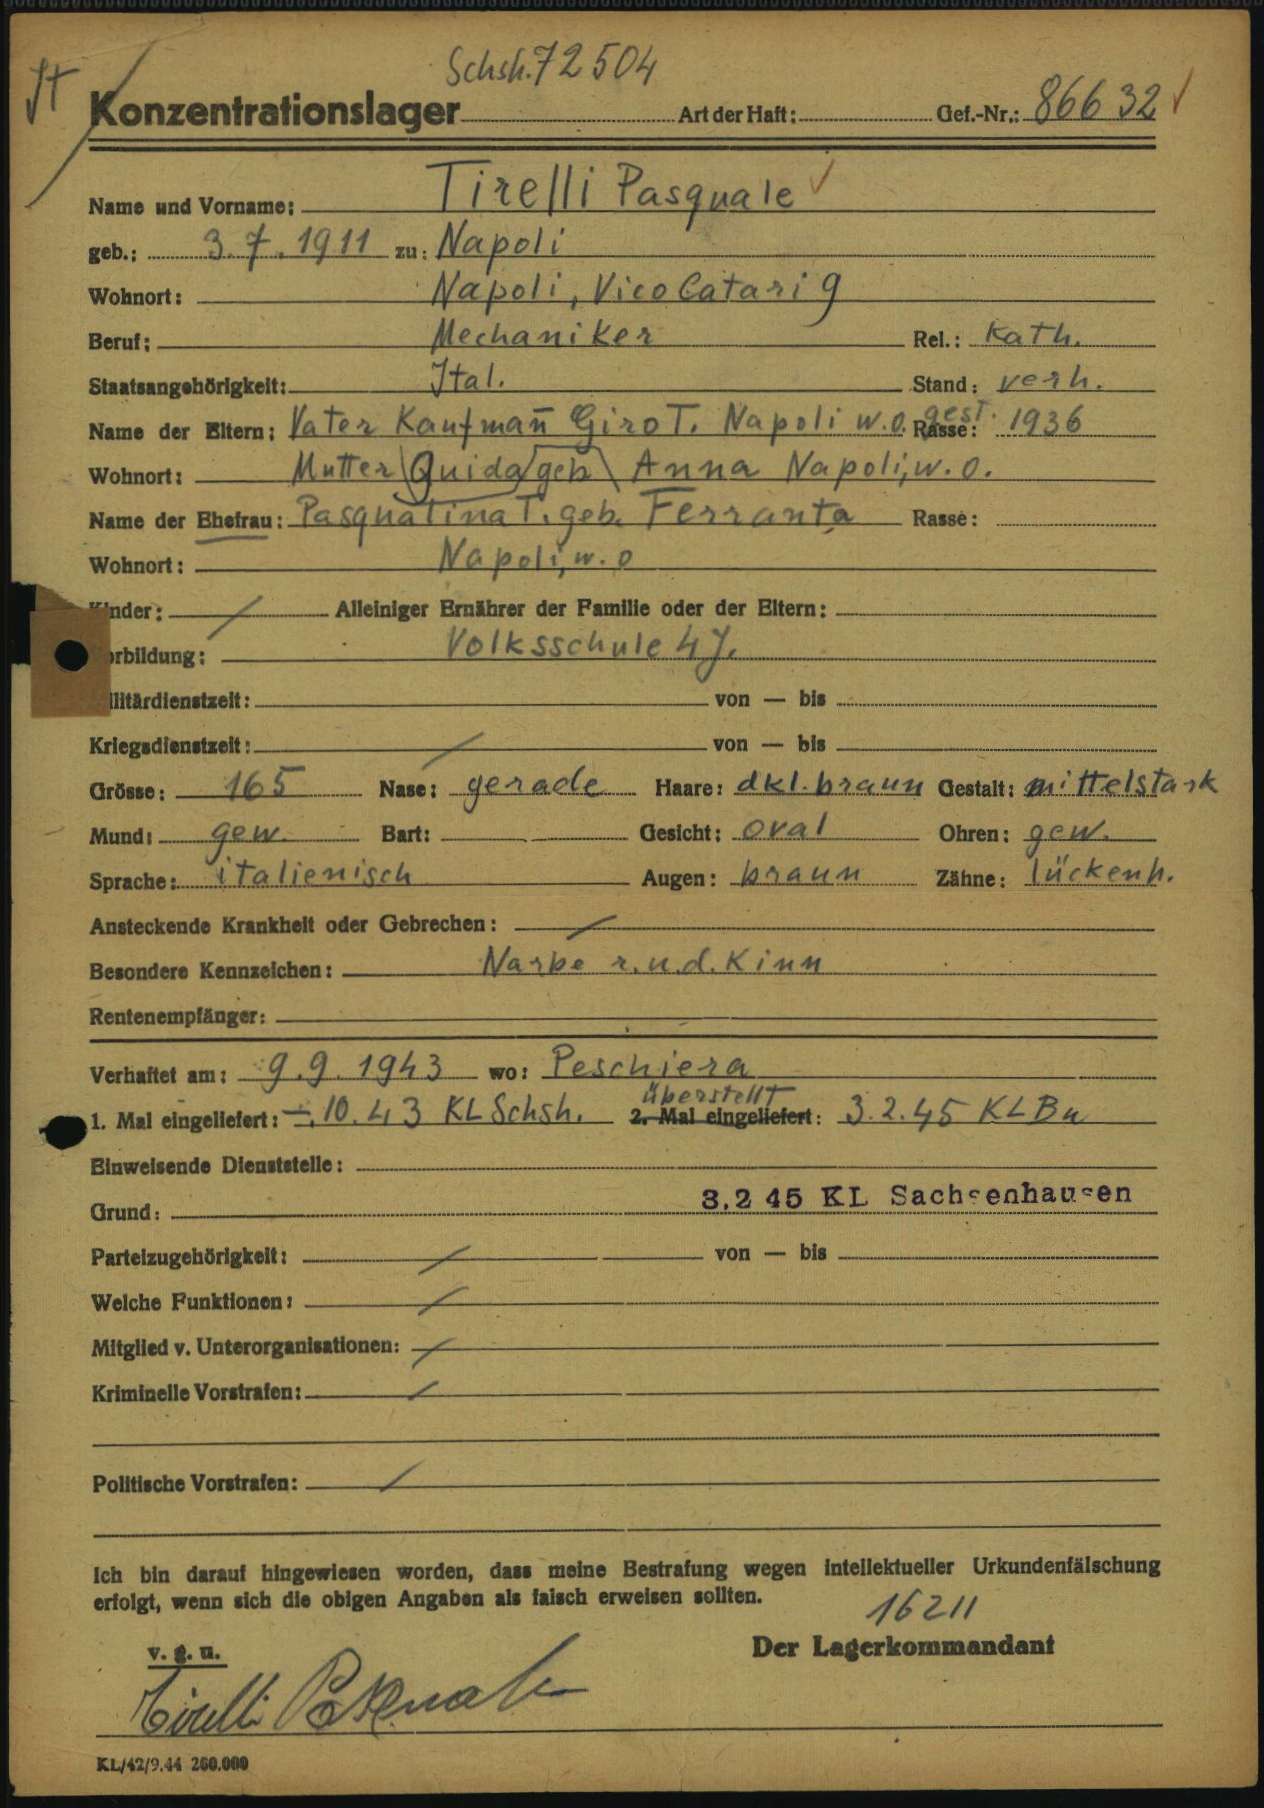 Schsh. 72504
It
Konzentrationslager Art der Haft: Gef.-Nr.: 86632
Name und Vorname: Tirelli Pasquale
geb.: 3.7.1911 zu: Napoli
Wohnort: Napoli, Vico Catari 9
Beruf: Mechaniker Rel.: Kath.
Staatsangehörigkeit: Ital. Stand: verh.
Name der Eltern: Vater Kaufman̄ Giro T. Napoli w.o. gest. Rasse: 1936
Wohnort: Mutter Quida geb Anna Napoli, w.o.
Name der Ehefrau: Pasqualina T. geb. Ferranta Rasse:
Wohnort: Napoli, w.o
Kinder: / Alleiniger Ernährer der Familie oder der Eltern:
orbildung: Volksschule 4 J.
litärdienstzeit: von — bis
Kriegsdienstzeit: / von — bis
Grösse: 165 Nase: gerade Haare: dkl. braun Gestalt: mittelstark
Mund: gew. Bart: Gesicht: oval Ohren: gew.
Sprache: italienisch Augen: braun Zähne: lückenh.
Ansteckende Krankheit oder Gebrechen: /
Besondere Kennzeichen: Narbe r.u.d. Kinn
Rentenempfänger:
Verhaftet am: 9.9.1943 wo: Peschiera
1. Mal eingeliefert: –.10.43 KL Schsh. überstellt 2. Mal eingeliefert: 3.2.45 KL Bu
Einweisende Dienststelle:
Grund: 3.2 45 KL Sachsenhausen
Parteizugehörigkeit: / von — bis
Welche Funktionen: /
Mitglied v. Unterorganisationen: /
Kriminelle Vorstrafen: /
Politische Vorstrafen: /
Ich bin darauf hingewiesen worden, dass meine Bestrafung wegen intellektueller Urkundenfälschung
erfolgt, wenn sich die obigen Angaben als falsch erweisen sollten.
16211
v. g. u. Der Lagerkommandant
Tirelli Pasquale
KL/42/9.44 260.000